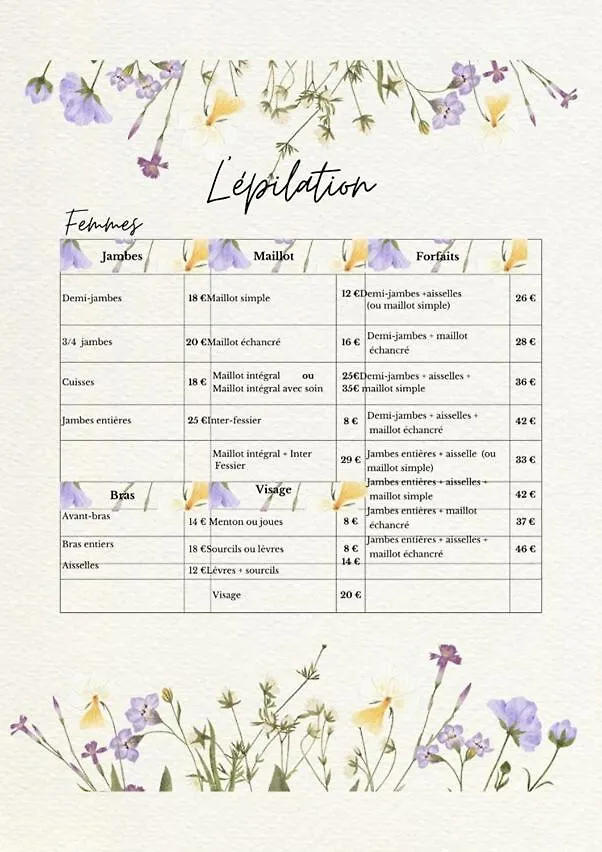 L'épilation
Femmes
Jambes Maillot Forfaits
Demi-jambes 18 € Maillot simple 12 € Demi-jambes +aisselles
(ou maillot simple) 26 €
3/4 jambes 20 € Maillot échancré 16 € Demi-jambes + maillot
échancré 28 €
Cuisses 18 € Maillot intégral ou 25€ Demi-jambes + aisselles +
Maillot intégral avec soin 35€ maillot simple 36 €
Jambes entières 25 € Inter-fessier 8 € Demi-jambes + aisselles +
maillot échancré 42 €
Maillot intégral + Inter
Fessier 29 € Jambes entières + aisselle (ou
maillot simple) 33 €
Bras Visage Jambes entières + aisselles +
maillot simple 42 €
Avant-bras 14 € Menton ou joues 8 € Jambes entières + maillot
échancré 37 €
Bras entiers 18 € Sourcils ou lèvres 8 € Jambes entières + aisselles +
maillot échancré 46 €
Aisselles 12 € Lèvres + sourcils 14 €
Visage 20 €